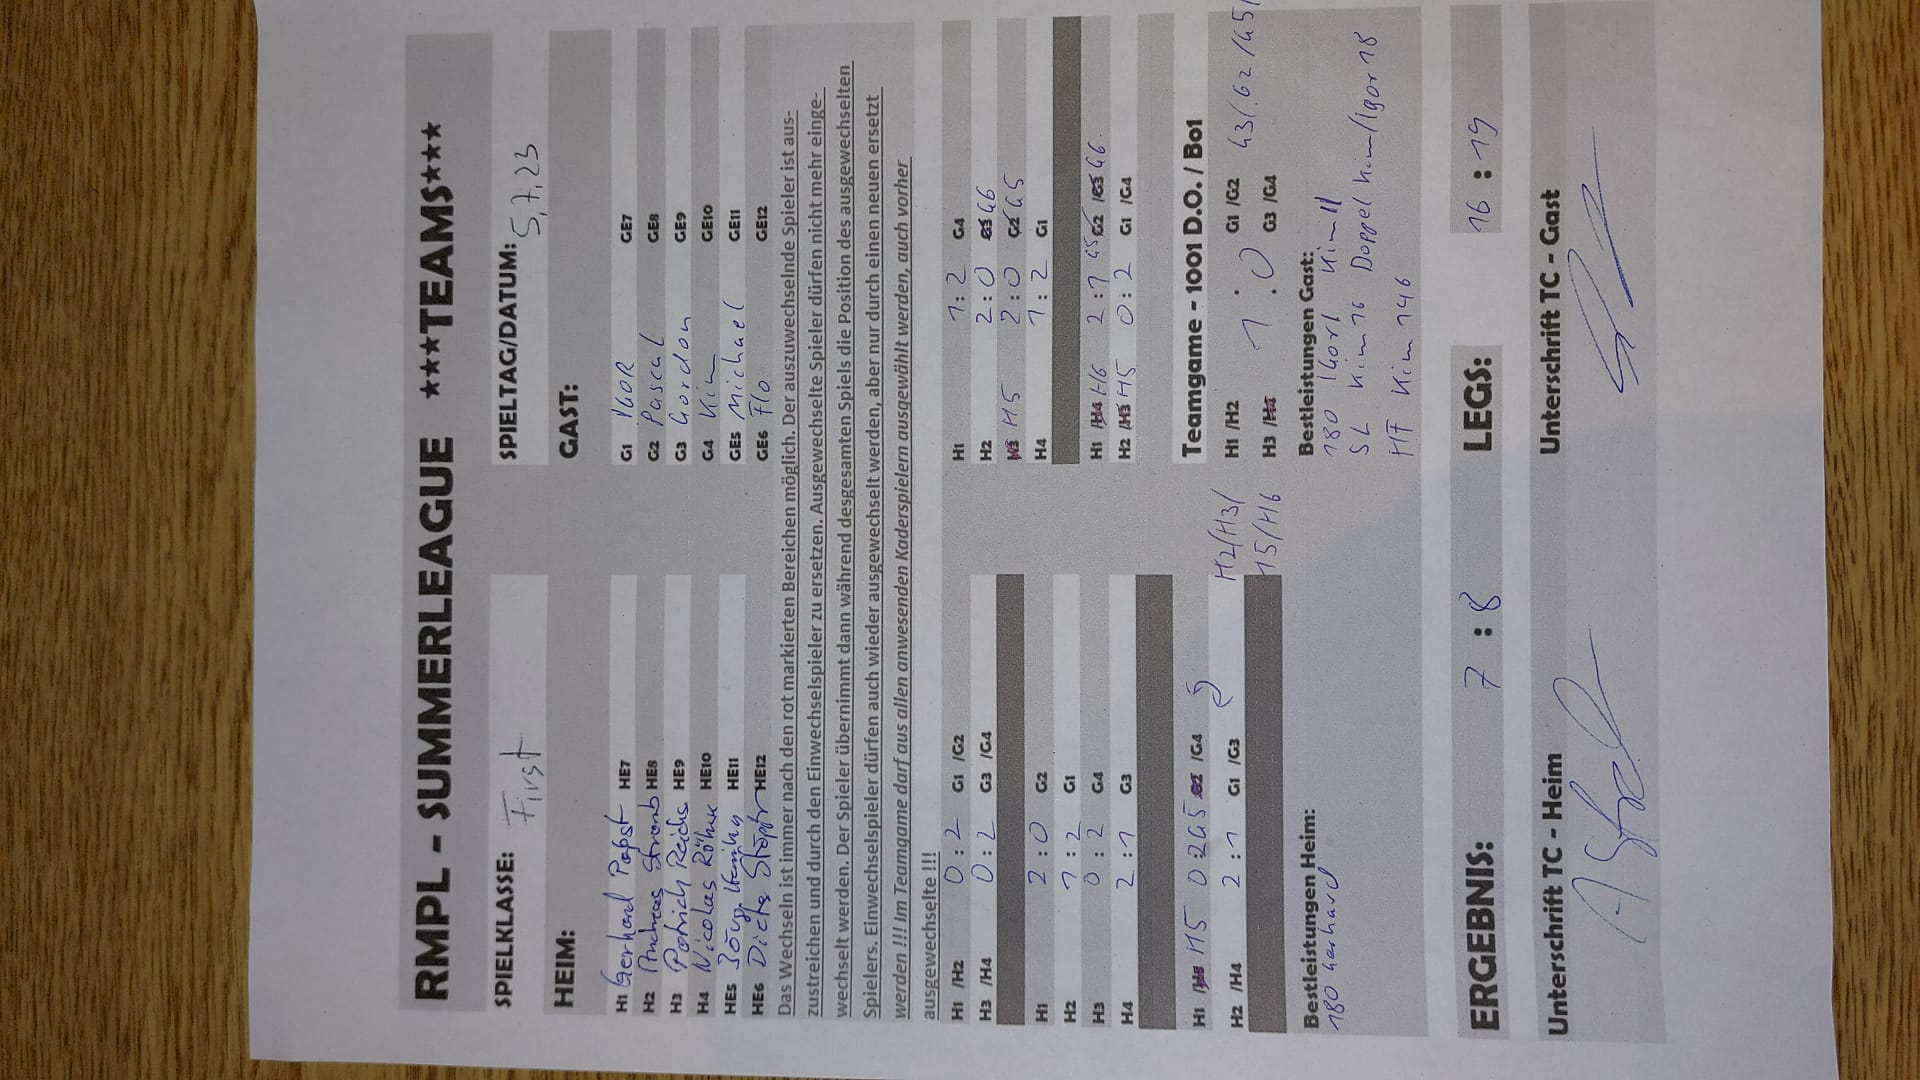 RMPL - SUMMERLEAGUE ★★★TEAMS★★★
SPIELKLASSE: First
SPIELTAG/DATUM: 5,7,23
HEIM:
GAST:
H1 Gerhard Papst HE7
G1 IGOR GE7
H2 Andreas HE8
G2 Pascal GE8
H3 Patrick Reichs HE9
G3 Gordon GE9
H4 Nicolas HE10
G4 Kim GE10
HE5 HE11
GE5 Michael GE11
HE6 HE12
GE6 Flo GE12
Das Wechseln ist immer nach den rot markierten Bereichen möglich. Der auszuwechselnde Spieler ist aus-
zustreichen und durch den Einwechselspieler zu ersetzen. Ausgewechselte Spieler dürfen nicht mehr einge-
wechselt werden. Der Spieler übernimmt dann während desgesamten Spiels die Position des ausgewechselten
Spielers. Einwechselspieler dürfen auch wieder ausgewechselt werden, aber nur durch einen neuen ersetzt
werden !!! Im Teamgame darf aus allen anwesenden Kaderspielern ausgewählt werden, auch vorher
ausgewechselte !!!
H1 /H2 0 : 2 G1 /G2
H3 /H4 0 : 2 G3 /G4
H1 2 : 0 G2
H2 1 : 2 G1
H3 0 : 2 G4
H4 2 : 1 G3
H1 / H5 0 : 2 G5 /G4
H2 /H4 2 : 1 G1 /G3
H1 1 : 2 G4
H2 2 : 0 G6
H5 2 : 0 G5
H4 1 : 2 G1
H1 /H4 H6 2 : 1 G5 G2 /G3 G6
H2 /H3 H5 0 : 2 G1 /G4
Teamgame - 1001 D.O. / Bo1
H2/H3/ H1 /H2 G1 /G2 G3/G2/G5/
H5/H6 H3 /H4 1 : 0 G3 /G4
Bestleistungen Heim:
180 Gerhard
Bestleistungen Gast:
180 Igor I Kim II
SL Kim 16 Doppel Kim/Igor 18
HF Kim 146
ERGEBNIS: 7 : 8
LEGS: 16 : 19
Unterschrift TC - Heim
Unterschrift TC - Gast